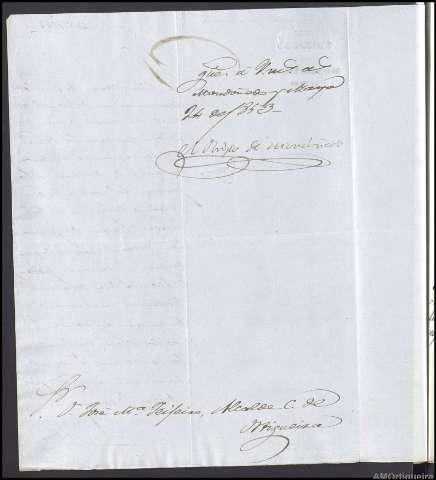 gue. á Vmd. m.s a.s
Mondoñedo y Mayo
24 de 1853
El Obispo de Mondoñedo
Sr. D. José Mª Teijeiro, Alcalde C. de
Ortigueira
AMOrtigueira